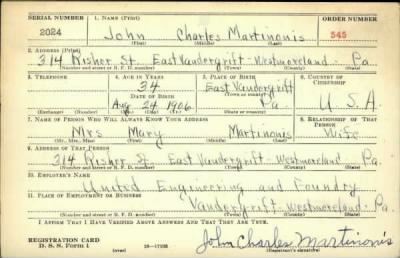 SERIAL NUMBER 1. NAME (Print) ORDER NUMBER
2024 John Charles Martinonis 545
(First) (Middle) (Last)
2. ADDRESS (Print)
314 Kisher St. East Vandergrift - Westmoreland - Pa.
(Number and street or R. F. D. number) (Town) (County) (State)
3. TELEPHONE 4. AGE IN YEARS 5. PLACE OF BIRTH 6. COUNTRY OF CITIZENSHIP
34 East Vandergrift
DATE OF BIRTH (Town or county)
Aug 24 1906 Pa. U. S. A.
(Exchange) (Number) (Mo.) (Day) (Yr.) (State or country)
7. NAME OF PERSON WHO WILL ALWAYS KNOW YOUR ADDRESS 8. RELATIONSHIP OF THAT PERSON
Mrs Mary Martinonis Wife
(Mr., Mrs., Miss) (First) (Middle) (Last)
9. ADDRESS OF THAT PERSON
314 Kisher St. East Vandergrift - Westmoreland - Pa.
(Number and street or R. F. D. number) (Town) (County) (State)
10. EMPLOYER'S NAME
United Engineering and Foundry
11. PLACE OF EMPLOYMENT OR BUSINESS
Vandergrift - Westmoreland - Pa.
(Number and street or R. F. D. number) (Town) (County) (State)
I AFFIRM THAT I HAVE VERIFIED ABOVE ANSWERS AND THAT THEY ARE TRUE.
REGISTRATION CARD
D. S. S. Form 1 (over) 16-17105 John Charles Martinonis
(Registrant's signature)